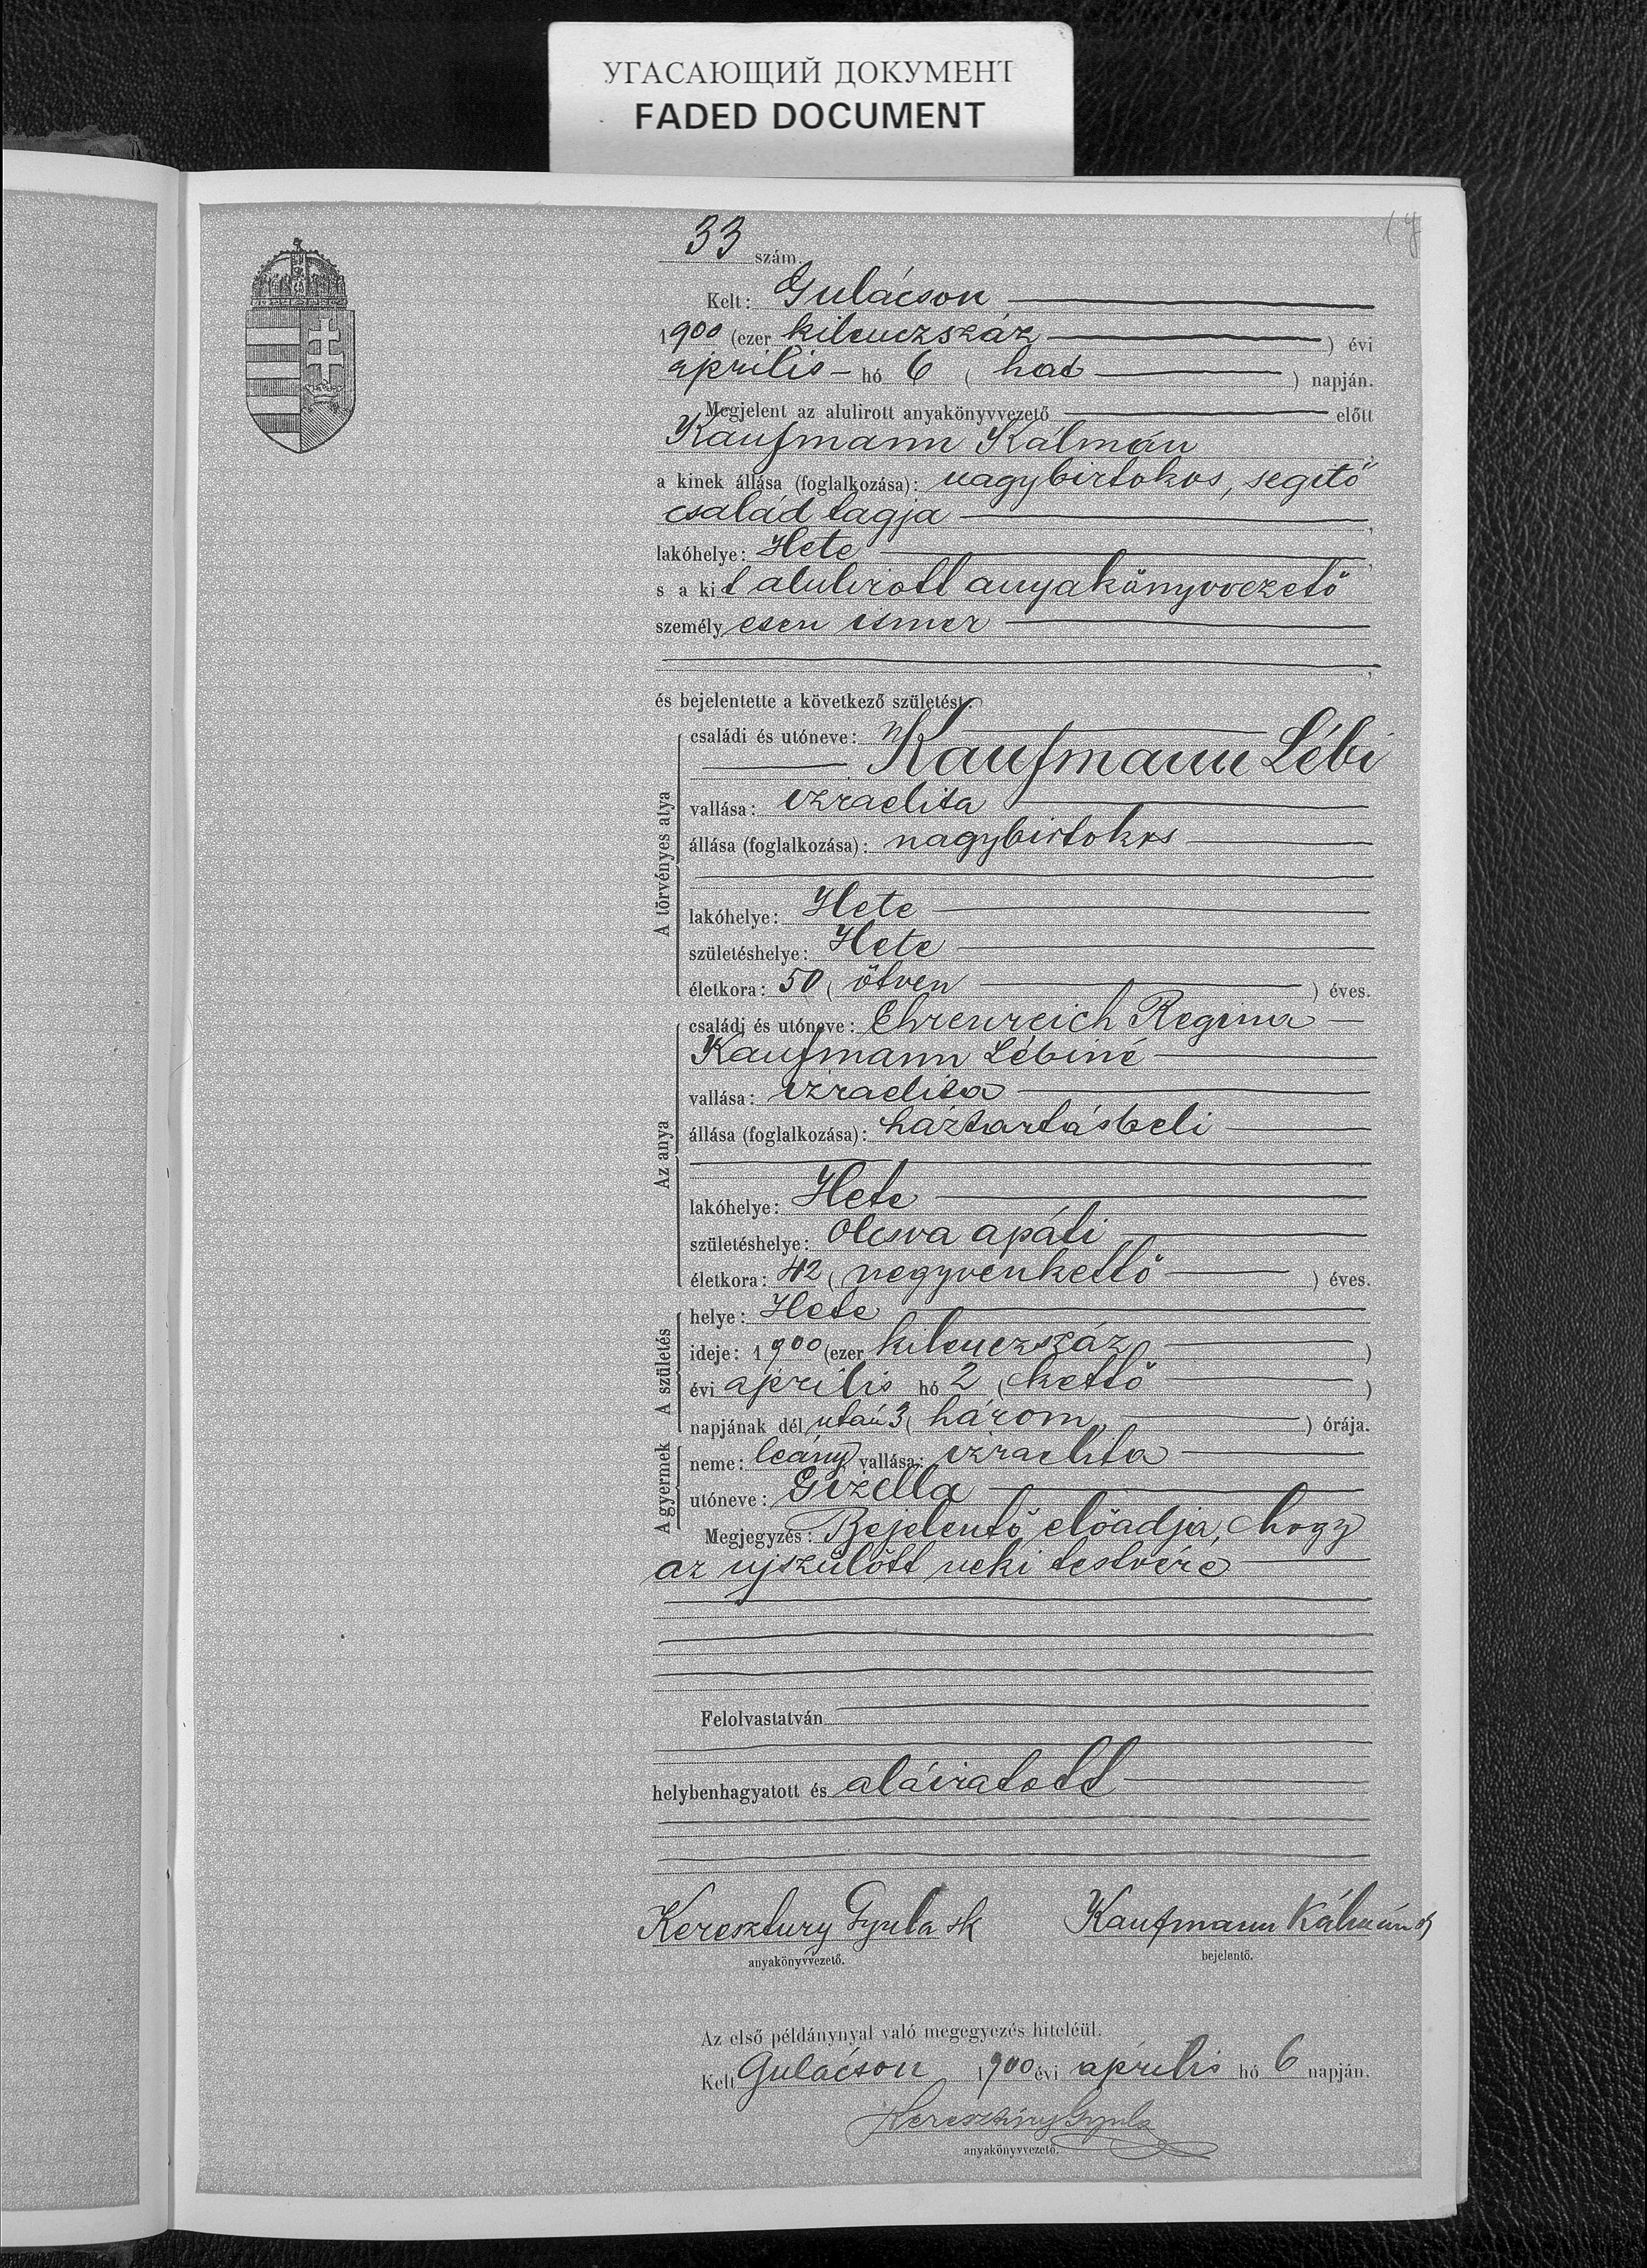 УГАСАЮЩИЙ ДОКУМЕНТ
FADED DOCUMENT
33 szám.
Kelt: Gulácson
1900 (ezer kilenczszáz ) évi
április hó 6 ( hat ) napján.
Megjelent az alulirott anyakönyvvezető előtt
Kaufmann Kálmán
a kinek állása (foglalkozása): nagybirtokos, segitő
család tagja ,
lakóhelye: Hete ,
s a kit alulirott anyakönyvvezető
személyesen ismer
,
és bejelentette a következő születést:
A törvényes atya
családi és utóneve:
Kaufmann Lébi
vallása: izraelita
állása (foglalkozása): nagybirtokos
lakóhelye: Hete
születéshelye: Hete
életkora: 50 ( ötven ) éves.
Az anya
családi és utóneve: Ehrenreich Regina
Kaufmann Lébiné
vallása: izraelita
állása (foglalkozása): háztartásbeli
lakóhelye: Hete
születéshelye: Olcsva apáti
életkora: 42 ( negyvenkettő ) éves.
A születés
helye: Hete
ideje: 1900 (ezer kilenczszáz )
évi április hó 2 ( kettő )
napjának dél után 3 ( három ) órája.
A gyermek
neme: leány vallása: izraelita
utóneve: Gizella
Megjegyzés: Bejelentő előadja, hogy
az ujszülött neki testvére
Felolvastatván
helybenhagyatott és aláiratott
Keresztury Gyula sk Kaufmann Kálmán sk
anyakönyvvezető. bejelentő.
Az első példánynyal való megegyezés hiteléül.
Kelt Gulácson 1900 évi április hó 6 napján.
Keresztury Gyula
anyakönyvvezető.